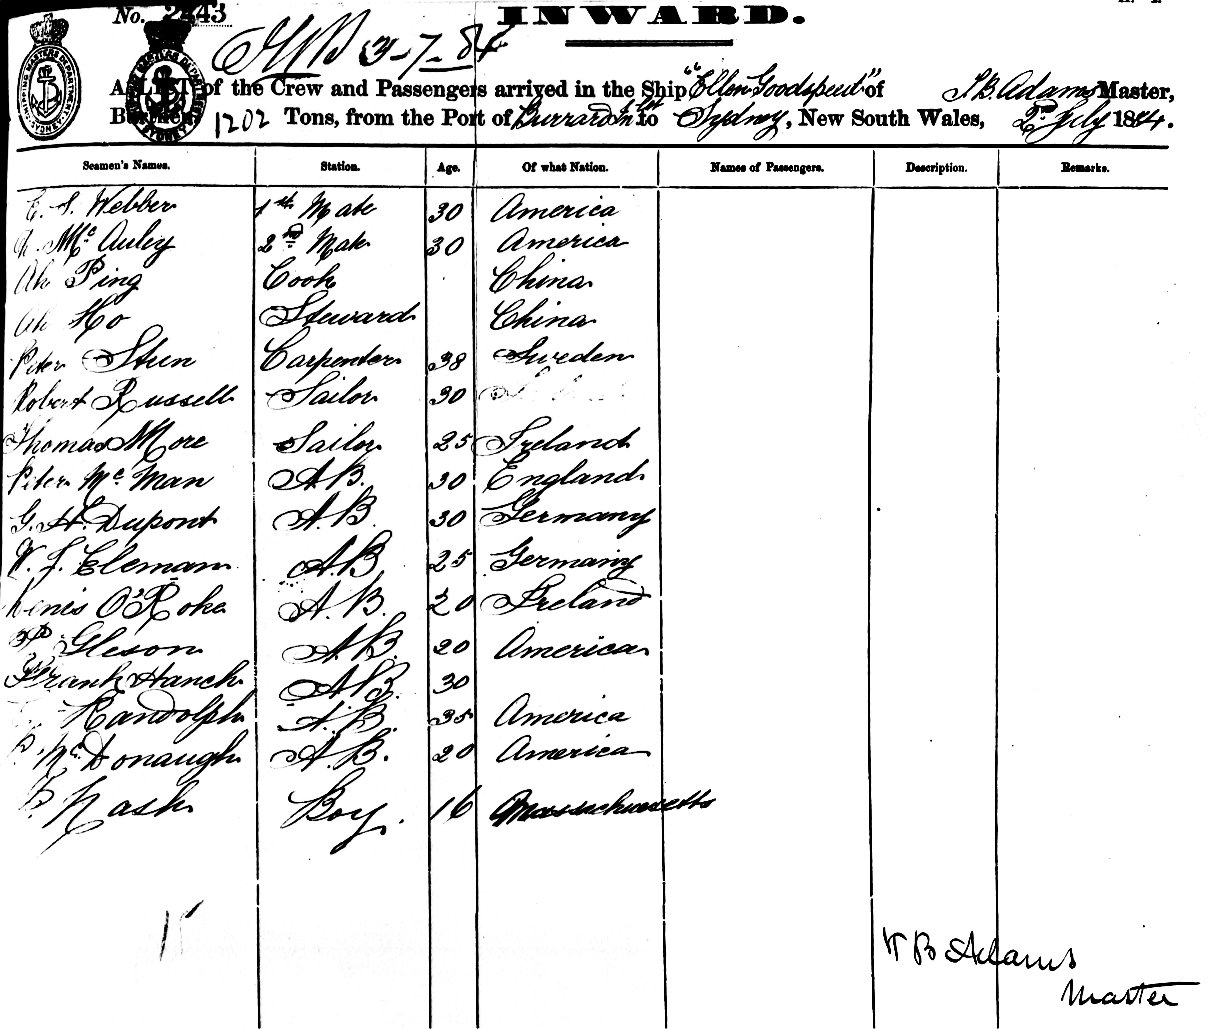 No. 2443
INWARD.
3-7-84
A LIST of the Crew and Passengers arrived in the Ship "Ellen Goodspeed" of J. B. Adams Master,
Burthen 1202 Tons, from the Port of Burrard Inlet to Sydney, New South Wales, 2nd July 1884.
Seamen's Names. Station. Age. Of what Nation. Names of Passengers. Description. Remarks.
E. S. Webber 1st Mate 30 America
Mc Auley 2nd Mate 30 America
Ah Ping Cook China
Ah Ho Steward China
Peter Steen Carpenter 38 Sweden
Robert Russell Sailor 30
Thomas More Sailor 25 Ireland
Peter Mc Man A.B. 30 England
G. H. Dupont A.B. 30 Germany
W. J. Cleman A.B. 25 Germany
Denis O'Roke A.B. 20 Ireland
Gleson A.B. 20 America
Frank Hanch A.B. 30
Randolph A.B. 35 America
Mc Donaugh A.B. 20 America
Nash Boy. 16 Massachusetts
15
B Adams
Master